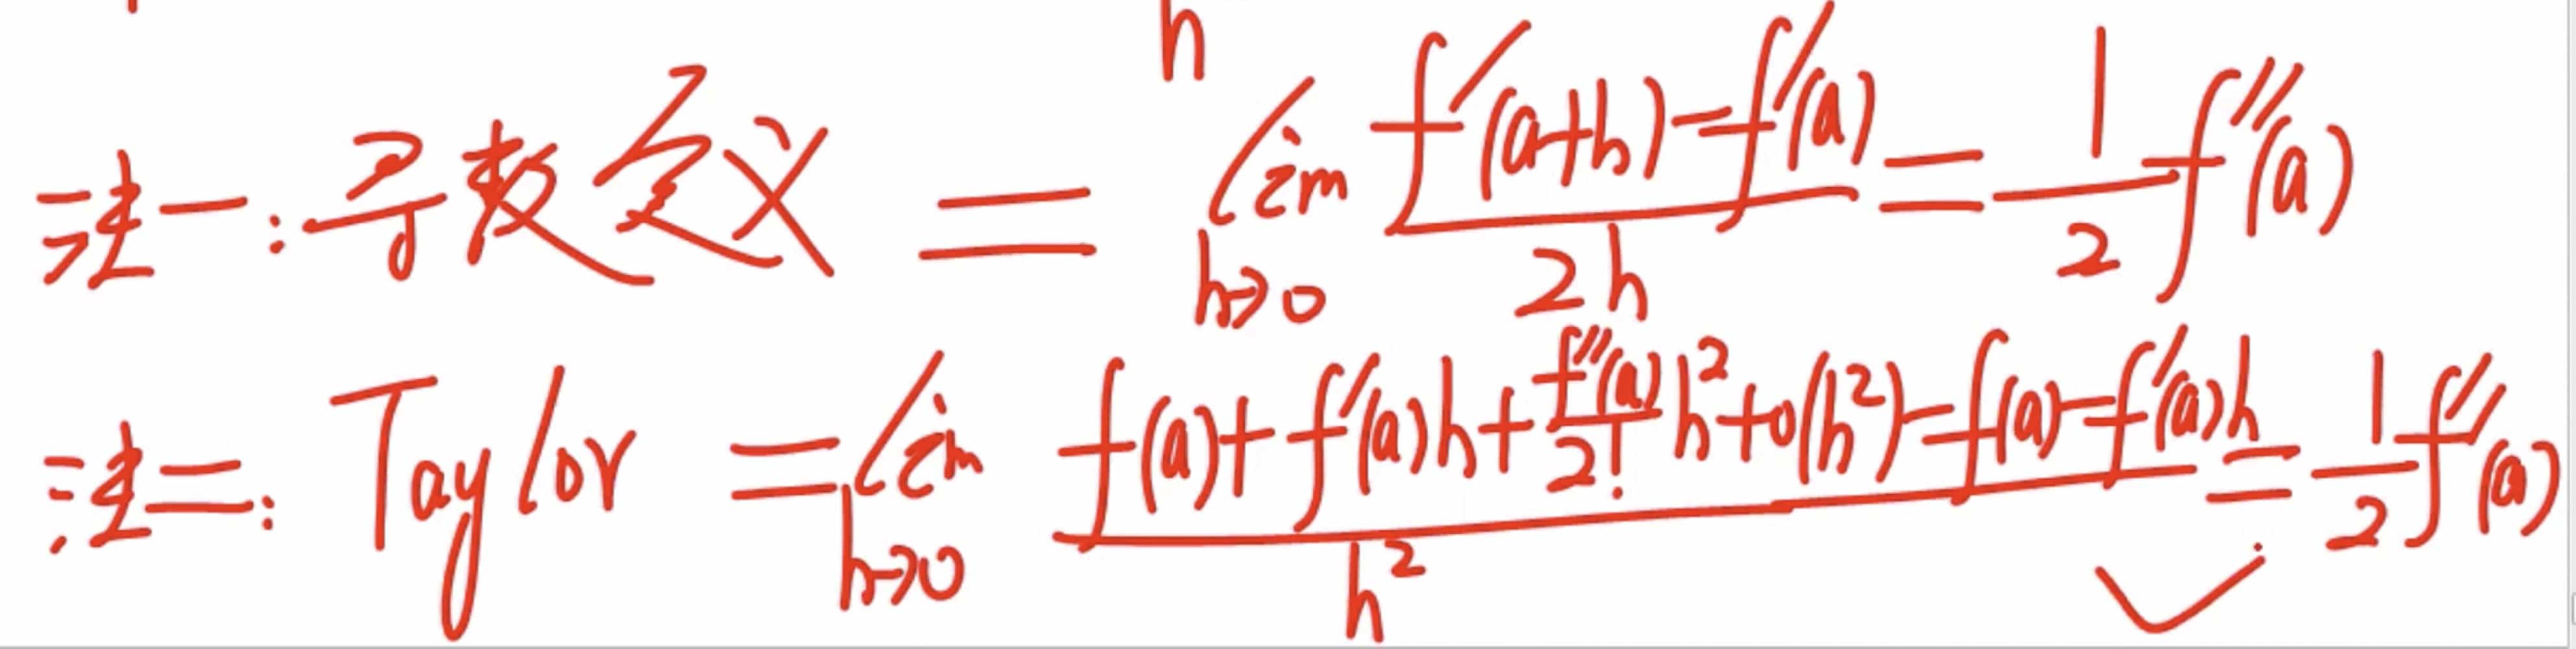 h
法一:导数定义 = lim_{h→0} \frac{f'(a+h)-f'(a)}{2h} = \frac{1}{2} f''(a)
法二:Taylor = lim_{h→0} \frac{f(a)+f'(a)h+\frac{f''(a)}{2!}h^2+o(h^2)-f(a)-f'(a)h}{h^2} = \frac{1}{2} f''(a)